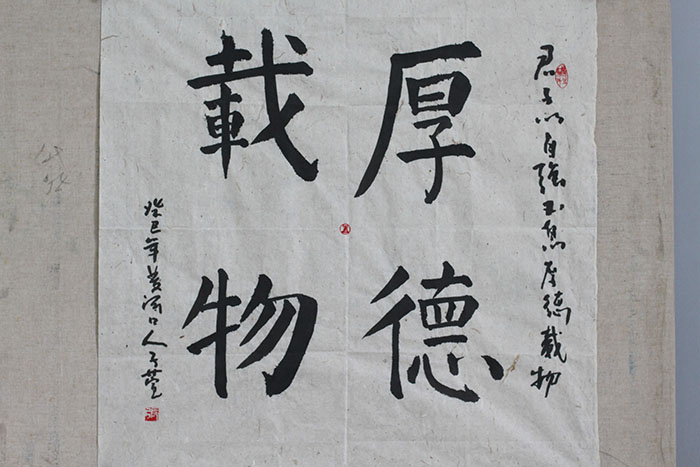 君子以自強不息厚德載物
厚德
載物
癸巳年黄河口人